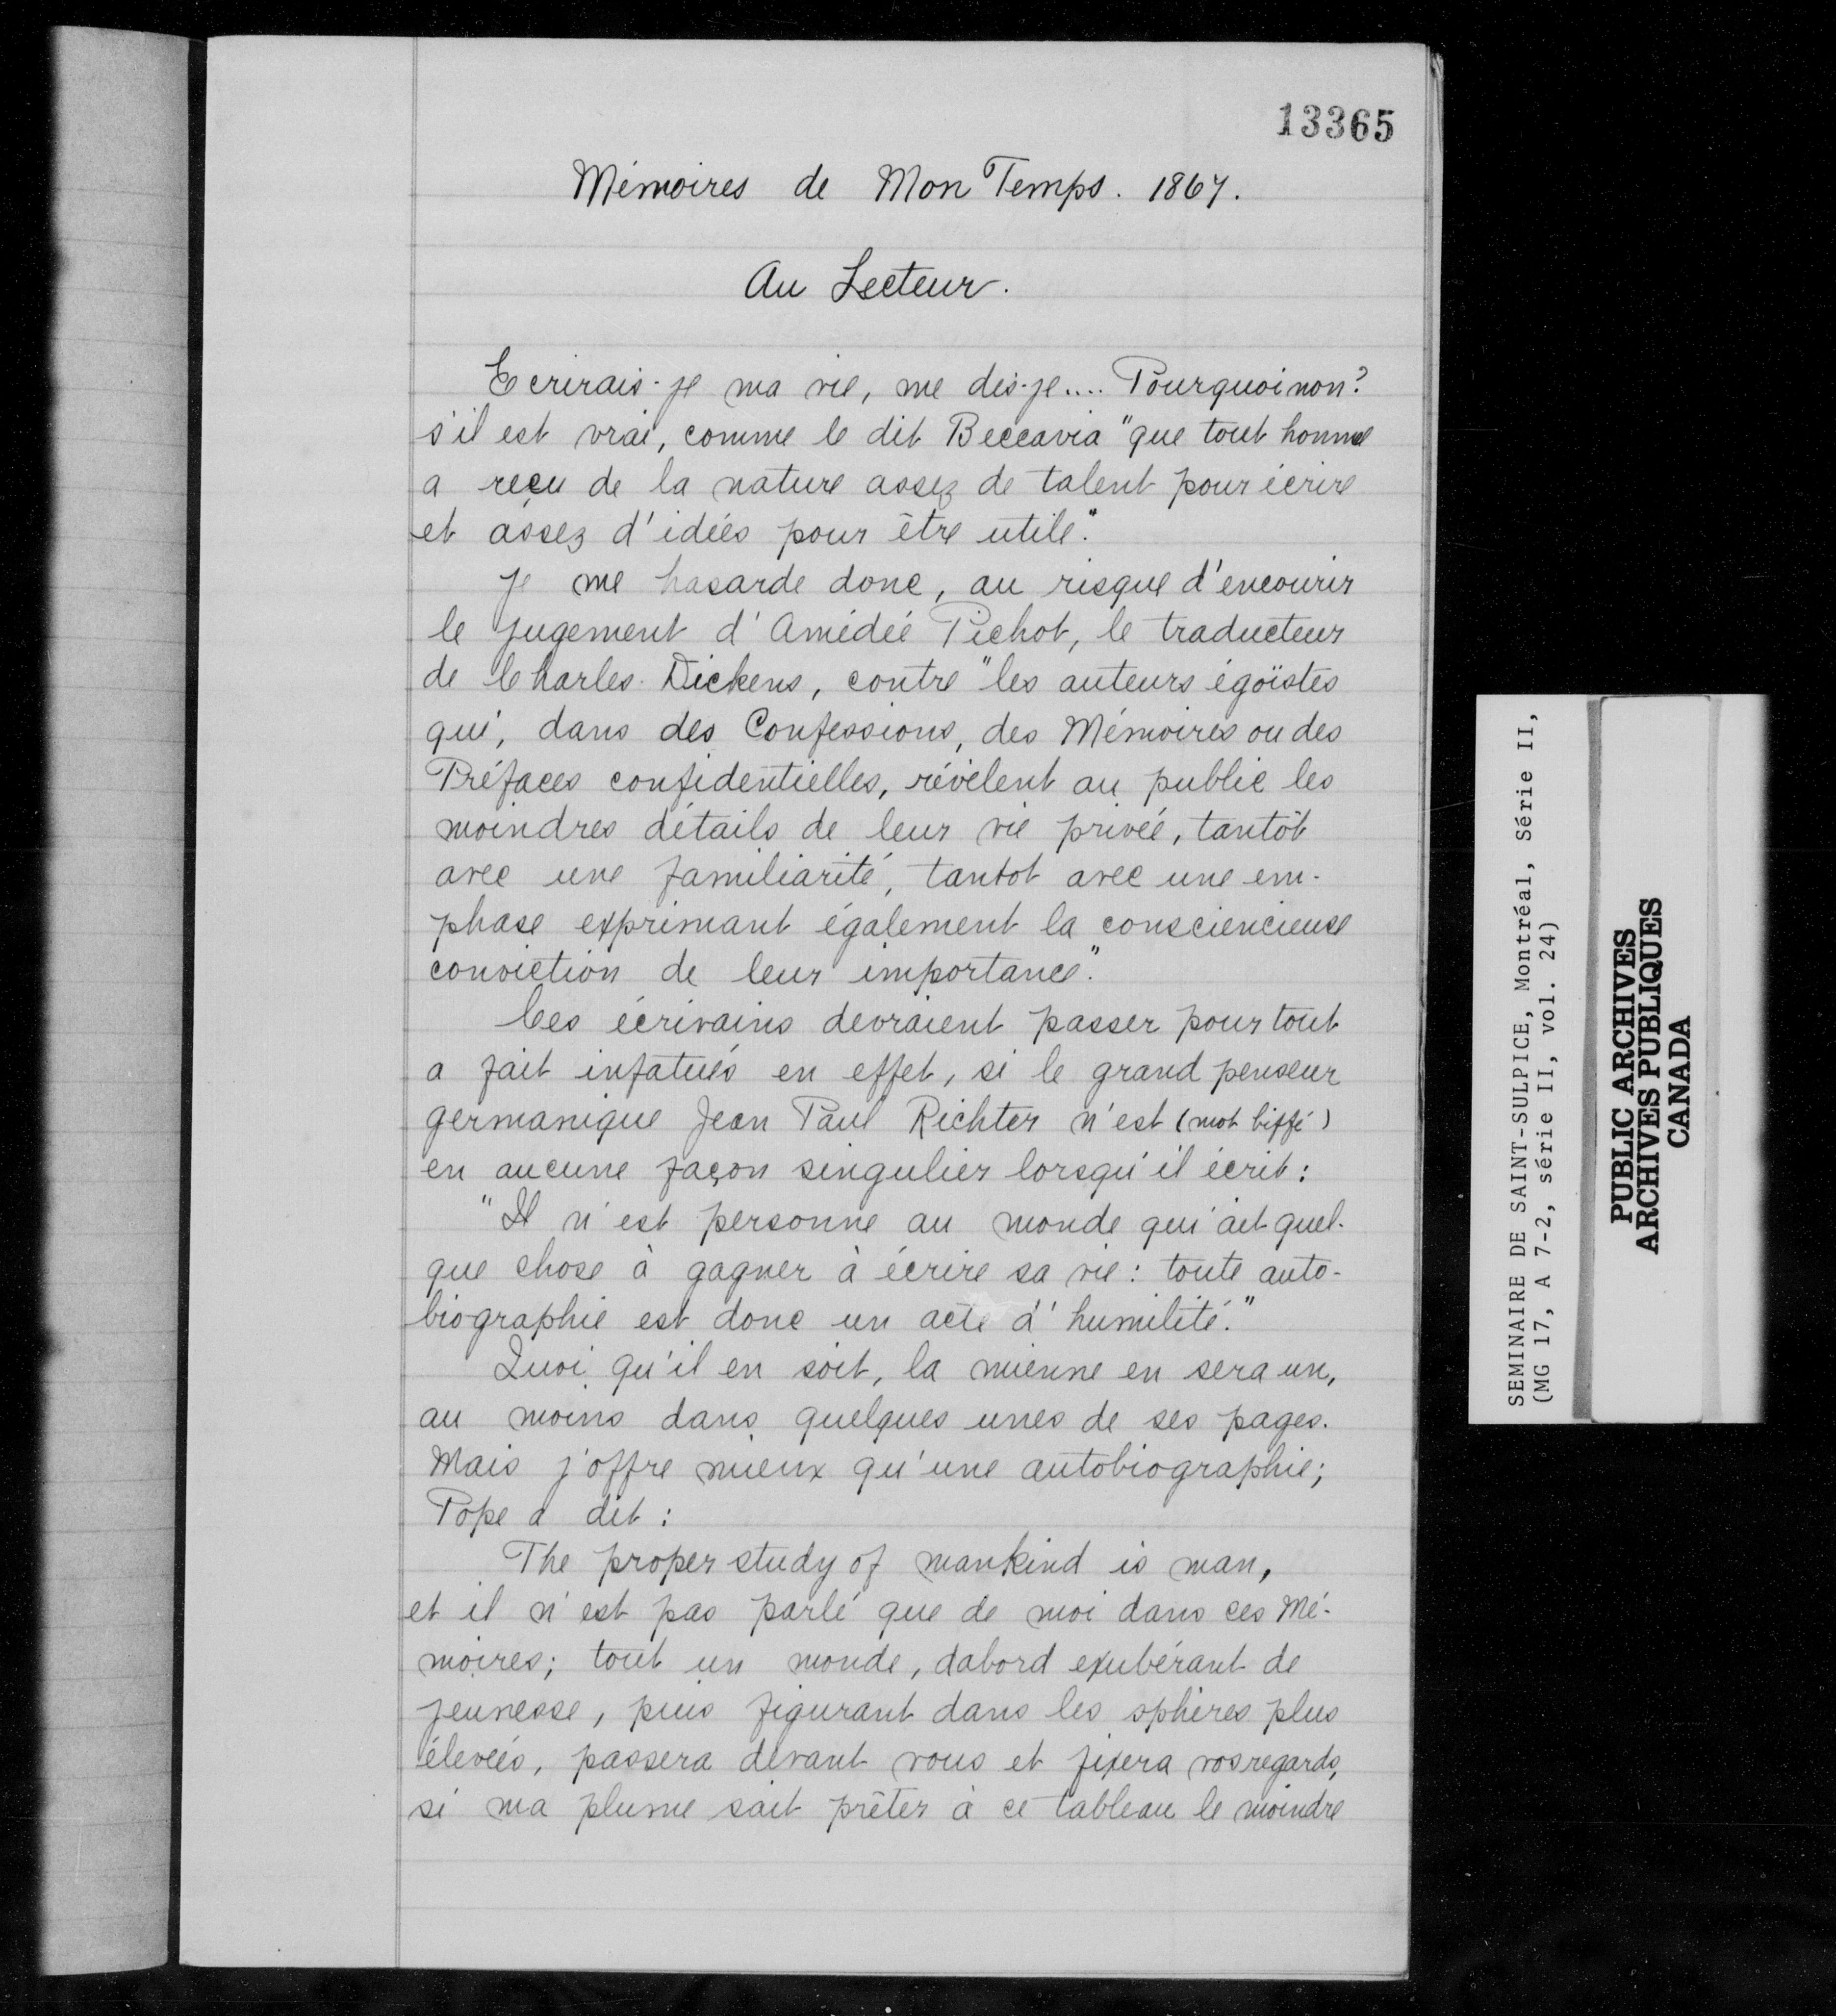 13365
Mémoires de Mon Temps. 1867.
Au Lecteur.
Ecrirais-je ma vie, me dis-je.... Pourquoi non?
s'il est vrai, comme le dit Beccaria "que tout homme
a reçu de la nature assez de talent pour écrire
et assez d'idées pour être utile."
Je me hasarde donc, au risque d'encourir
le jugement d'Amédée Pichot, le traducteur
de Charles Dickens, contre "les auteurs égoïstes
qui, dans des Confessions, des Mémoires ou des
Préfaces confidentielles, révèlent au public les
moindres détails de leur vie privée, tantôt
avec une familiarité, tantot avec une em-
phase exprimant également la consciencieuse
conviction de leur importance."
Ces écrivains devraient passer pour tout
a fait infatués en effet, si le grand penseur
germanique Jean Paul Richter n'est (mot biffé)
en aucune façon singulier lorsqu'il écrit:
"Il n'est personne au monde qui ait quel-
que chose à gagner à écrire sa vie: toute auto-
biographie est donc un acte d'humilité."
Quoi qu'il en soit, la mienne en sera un,
au moins dans quelques unes de ses pages.
Mais j'offre mieux qu'une autobiographie;
Pope a dit:
The proper study of mankind is man,
et il n'est pas parlé que de moi dans ces Mé-
moires; tout un monde, dabord exubérant de
jeunesse, puis figurant dans les sphères plus
élevées, passera devant vous et fixera vos regards,
si ma plume sait prêter à ce tableau le moindre
SEMINAIRE DE SAINT-SULPICE, Montréal, Série II,
(MG 17, A 7-2, série II, vol. 24)
PUBLIC ARCHIVES
ARCHIVES PUBLIQUES
CANADA